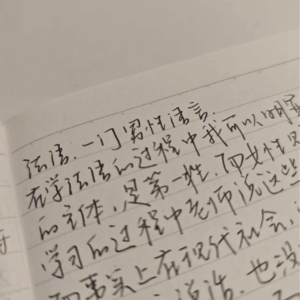 法语，一门男性语言。
在学法语的过程中我可以明
的主体，是第一性，而女性只
学习的过程中老师说这些
事实上在现代社会，
也没